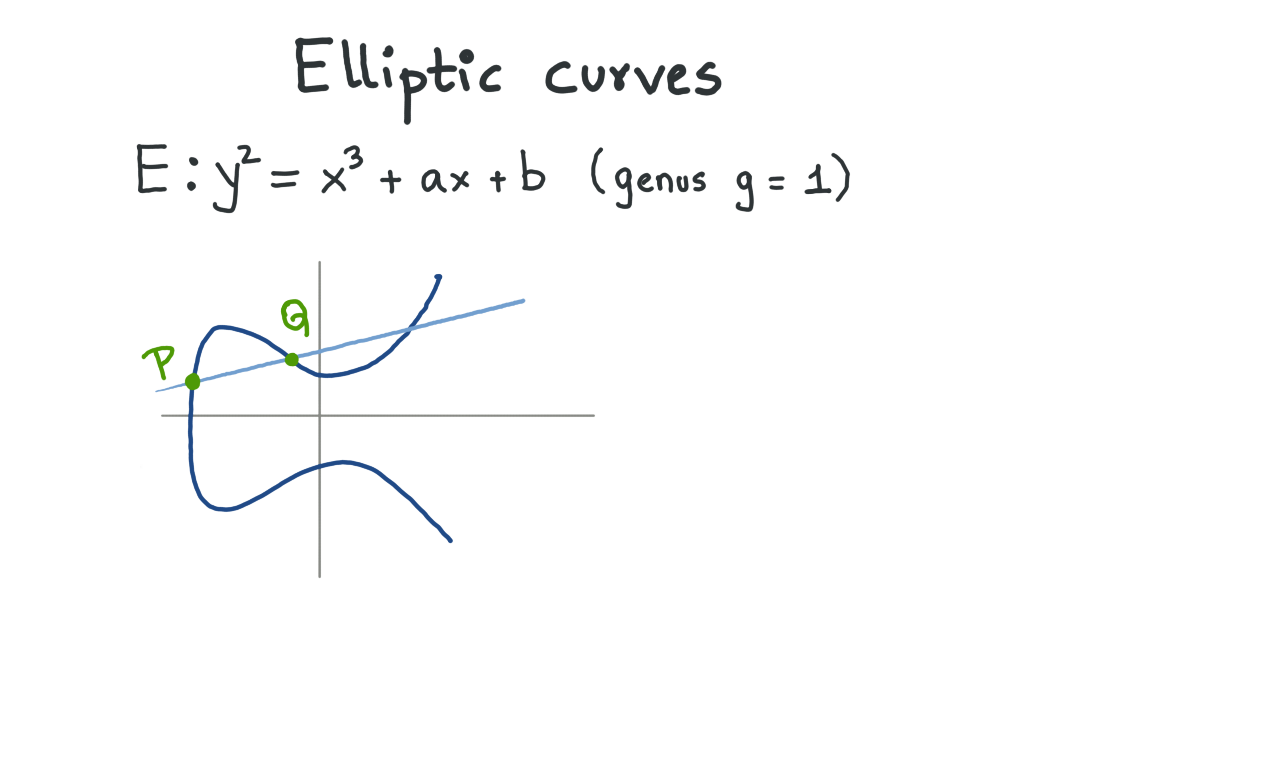 Elliptic curves
E : y² = x³ + ax + b (genus g = 1)
Q
P